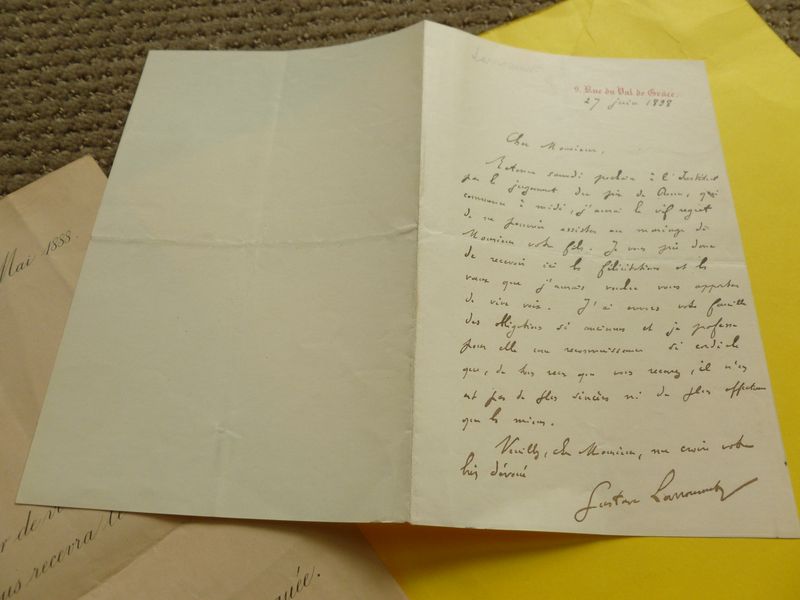 Larroumet
9, Rue du Val de Grâce.
27 juin 1898
Cher Monsieur,
Retenu samedi prochain à l'Institut
par le jugement du prix de Rome, qui
commence à midi, j'aurai le vif regret
de ne pouvoir assister au mariage de
Monsieur votre fils. Je vous prie donc
de recevoir ici les félicitations et les
vœux que j'aurais voulu vous apporter
de vive voix. J'ai envers votre famille
des obligations si anciennes et je professe
pour elle une reconnaissance si cordiale
que, de tous ceux que vous recevrez, il n'en
est pas de plus sincères ni de plus affectueux
que les miens.
Veuillez, cher Monsieur, me croire votre
très dévoué
Gustave Larroumet
Mai 1888.
recevra